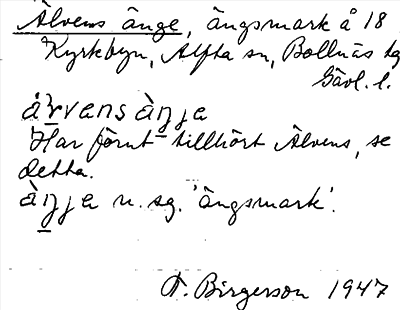 Älvens änge, ängsmark å 18
Kyrkbyn, Alfta sn, Bollnäs tg
Gävl. l.
ä̀rvensàŋja
Har förut tillhört Älvens, se
detta.
àŋja n. sg. 'ängsmark'.
F. Birgerson 1947